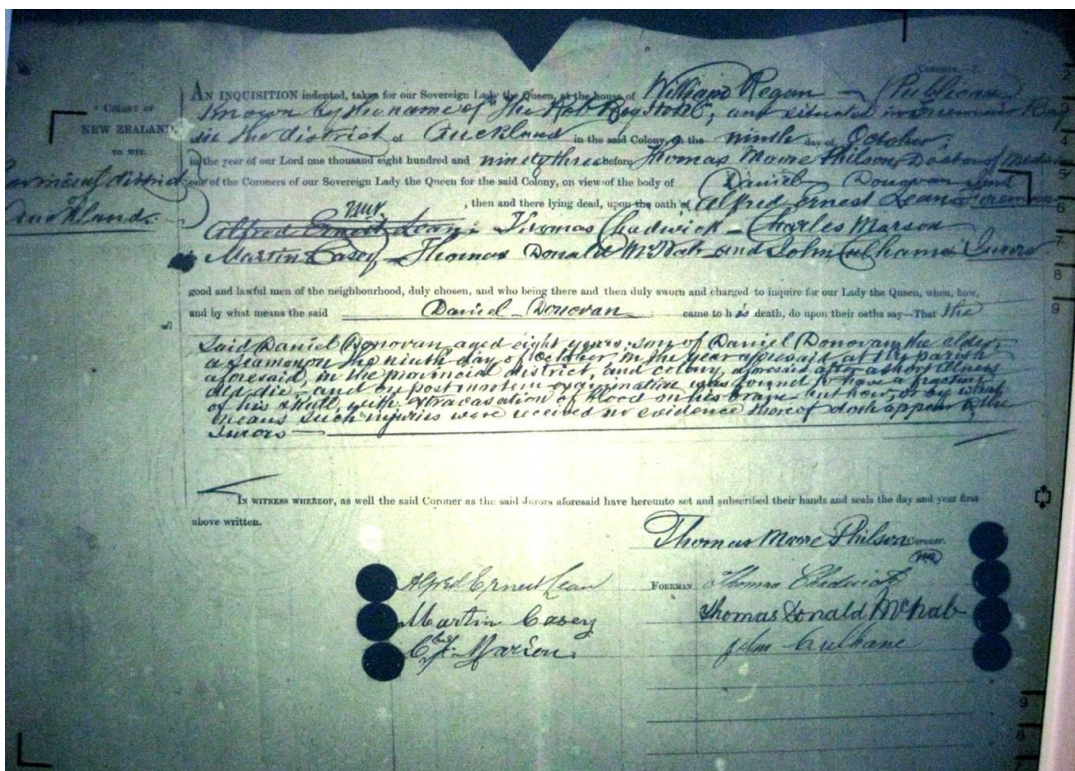 Coroner
AN INQUISITION indented, taken for our Sovereign Lady the Queen, at the house of William Regan - Publican
COLONY OF
NEW ZEALAND,
TO WIT.
Known by the name of "The Rob Roy Hotel", and situated in Freemans Bay
in the district of Auckland in the said Colony, on the ninth day of October,
in the year of our Lord one thousand eight hundred and ninety three before Thomas Moore Philson Doctor of Med
Provincial district
one of the Coroners of our Sovereign Lady the Queen for the said Colony, on view of the body of Daniel Donovan
Auckland.
, then and there lying dead, upon the oath of Alfred Ernest Lean
Alfred Ernest Lean; Thomas Chadwick - Charles Marson
Martin Casey - Thomas Donald McNab and John Culhane Jurors
good and lawful men of the neighbourhood, duly chosen, and who being there and then duly sworn and charged to inquire for our Lady the Queen, when, how,
and by what means the said Daniel - Donovan came to his death, do upon their oaths say—That the
Said Daniel Donovan, aged eight years, son of Daniel Donovan the elder,
a seaman on the ninth day of October in the year aforesaid, at the parish
aforesaid, in the provincial district, and colony, aforesaid after a short illness
did die, and by post mortem examination was found to have a fracture
of his skull, with extravasation of blood on his brain but how, or by what
means such injuries were received no evidence thereof doth appear to the
Jurors
IN WITNESS WHEREOF, as well the said Coroner as the said Jurors aforesaid have hereunto set and subscribed their hands and seals the day and year first
above written.
Thomas Moore Philson Coroner.
Alfred Ernest Lean FOREMAN Thomas Chadwick
Martin Casey Thomas Donald McNab
Marson John Culhane